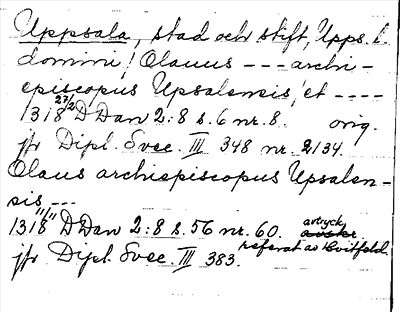 Uppsala, stad och stift, Upps. l.
domini! Olauus --- archi-
episcopus Upsalensis, et ----
1318 27/2 D Dan 2:8 s. 6 nr. 8. orig.
jfr Dipl. Svec. III 348 nr. 2134.
Olaus archiepiscopus Upsalen-
sis ---
1318 11/11 D Dan 2:8 s. 56 nr. 60. avtryck
referat av Hvitfeld.
jfr Dipl. Svec. III 383.